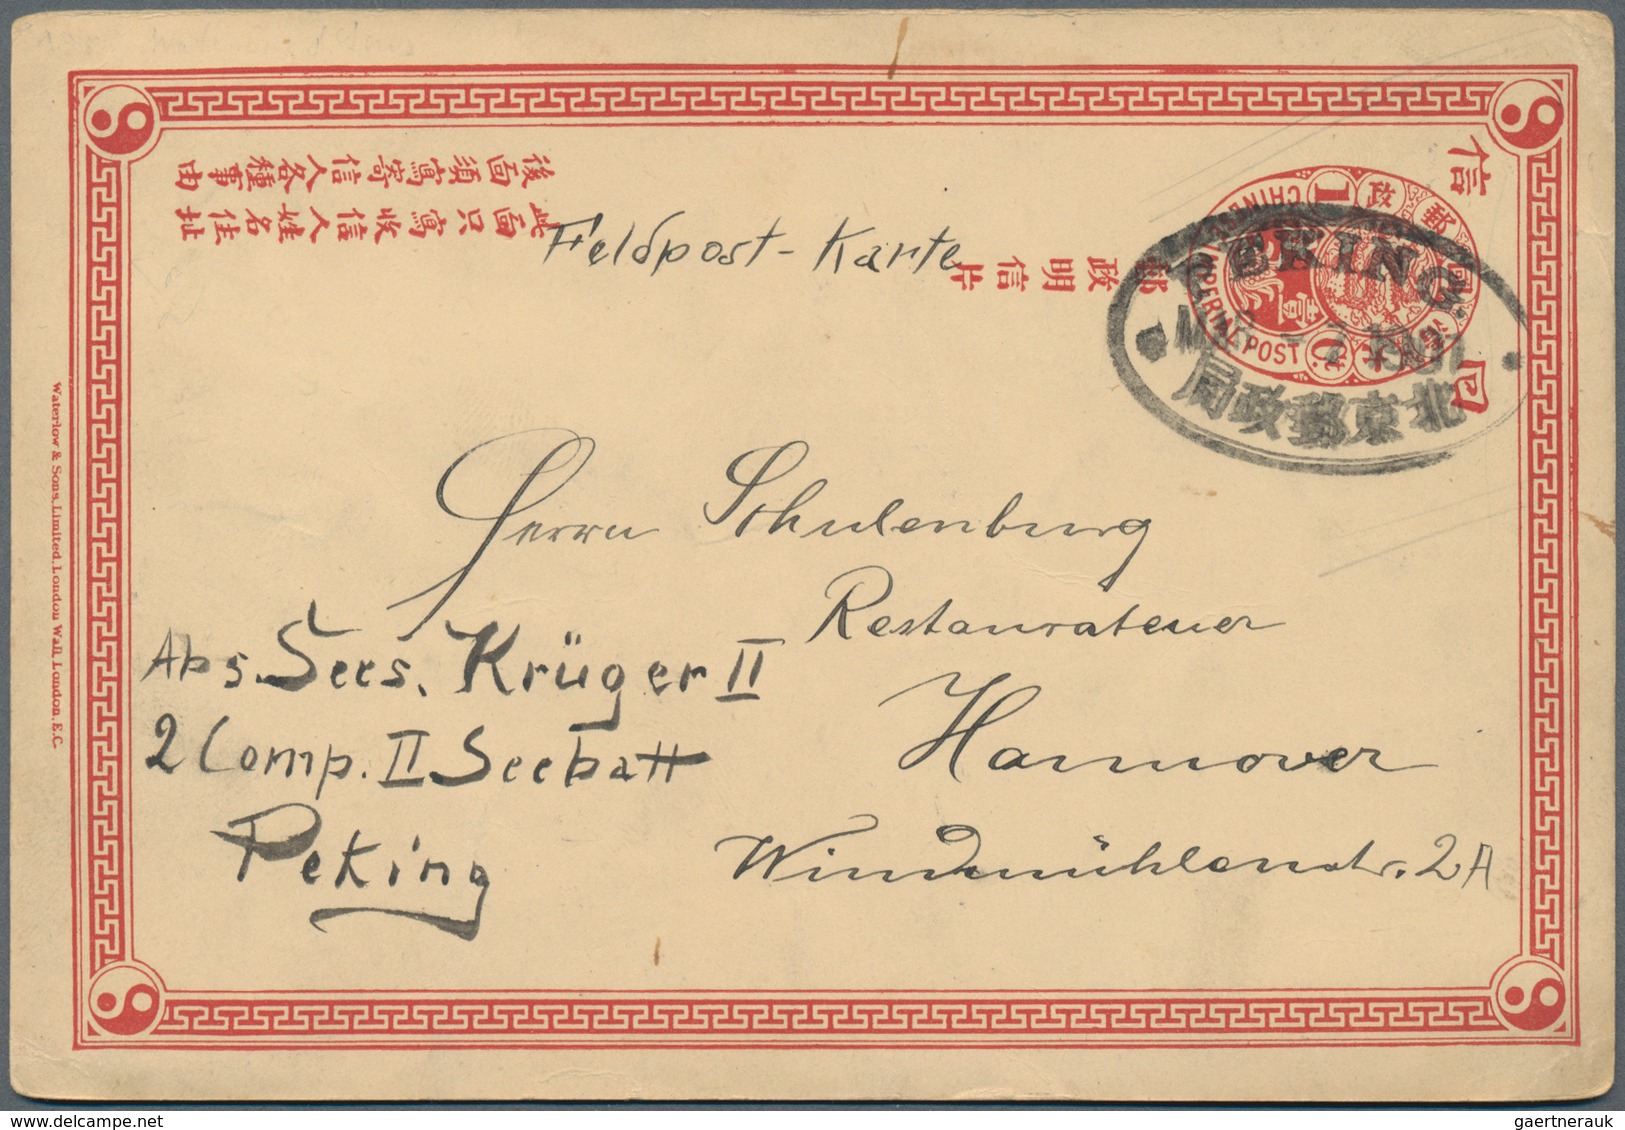 後面須寫寄信人各種事由
此面只寫收信人姓名住址
Feldpost-Karte
郵政明信片
信
CHINESE IMPERIAL POST
1 Ct
郵政
PEKING
MAR - 7 1901
北京郵政局
Herrn Schulenburg
Restaurateuer
Hannover
Windmühlenstr. 2A
Abs. Sees. Krüger II
2 Comp. II Seebatt
Peking
Waterlow & Sons, Limited, London Wall, London, E.C.
delcampe.net
gaertnerauk